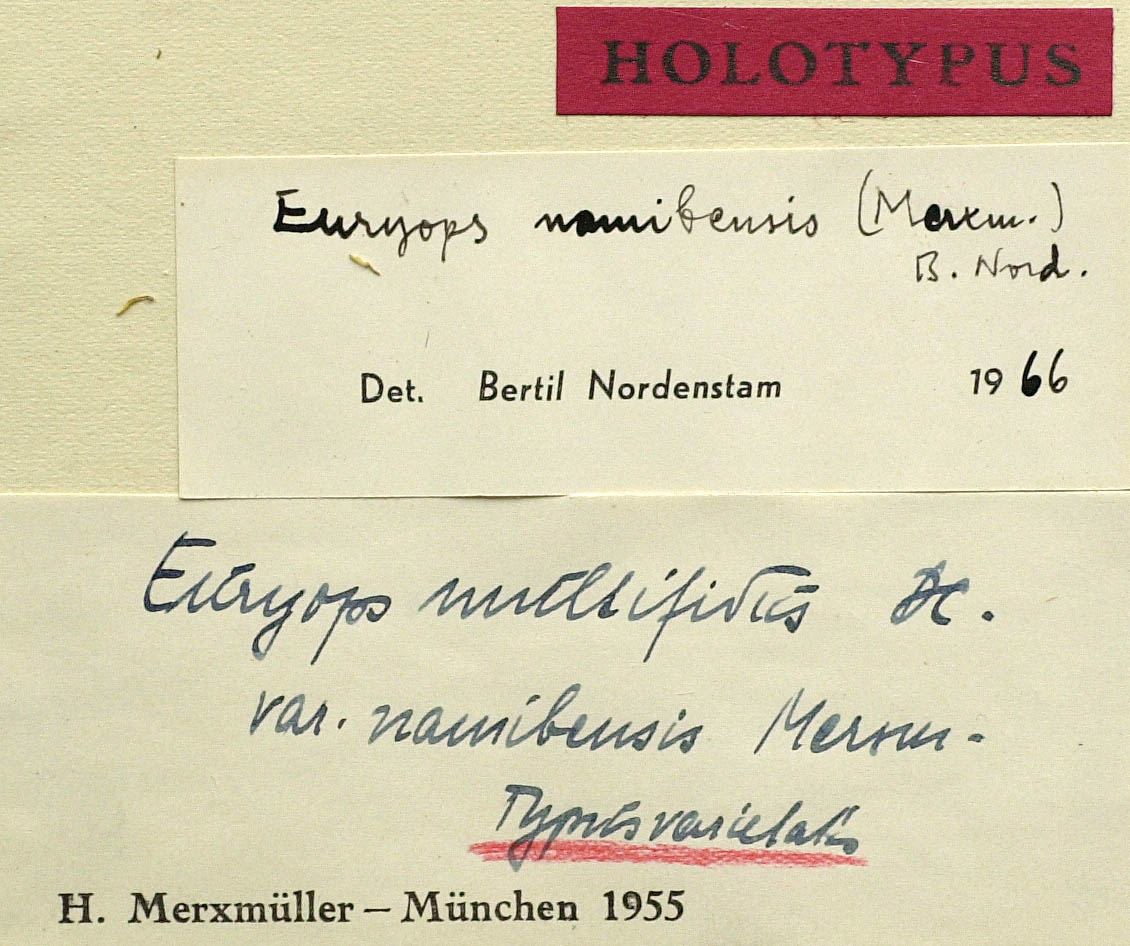 HOLOTYPUS
Euryops namibensis (Merxm.)
B. Nord.
Det. Bertil Nordenstam 1966
Euryops multifidus DC.
var. namibensis Merxm.
Typus varietatis
H. Merxmüller – München 1955